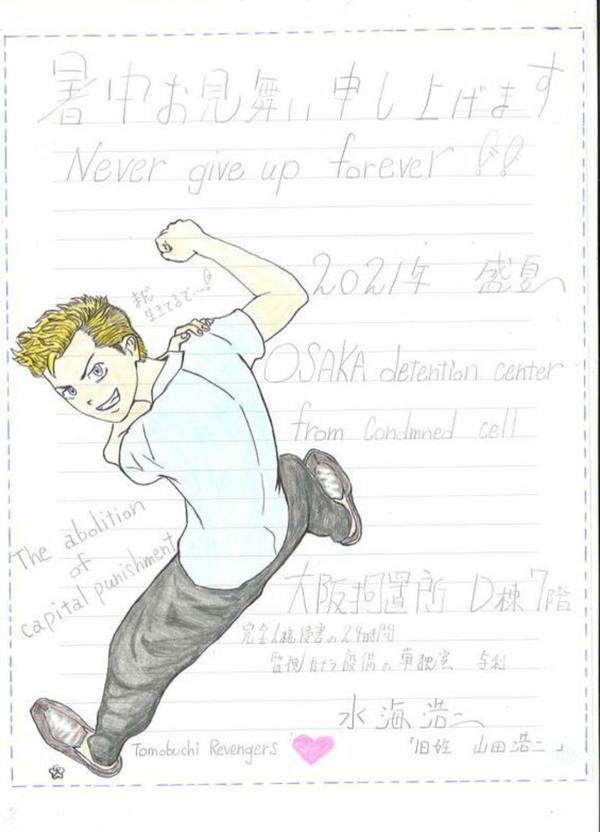 暑中お見舞い申し上げます
Never give up forever !!
まだ
生きてるで〜!
2021年 盛夏
OSAKA detention center
from condmned cell
The abolition
of
capital punishment
大阪拘置所 D棟7階
完全人権侵害の24時間
監視カメラ設備の単独室
水海浩二
「旧姓 山田浩二」
Tomobuchi Revengers